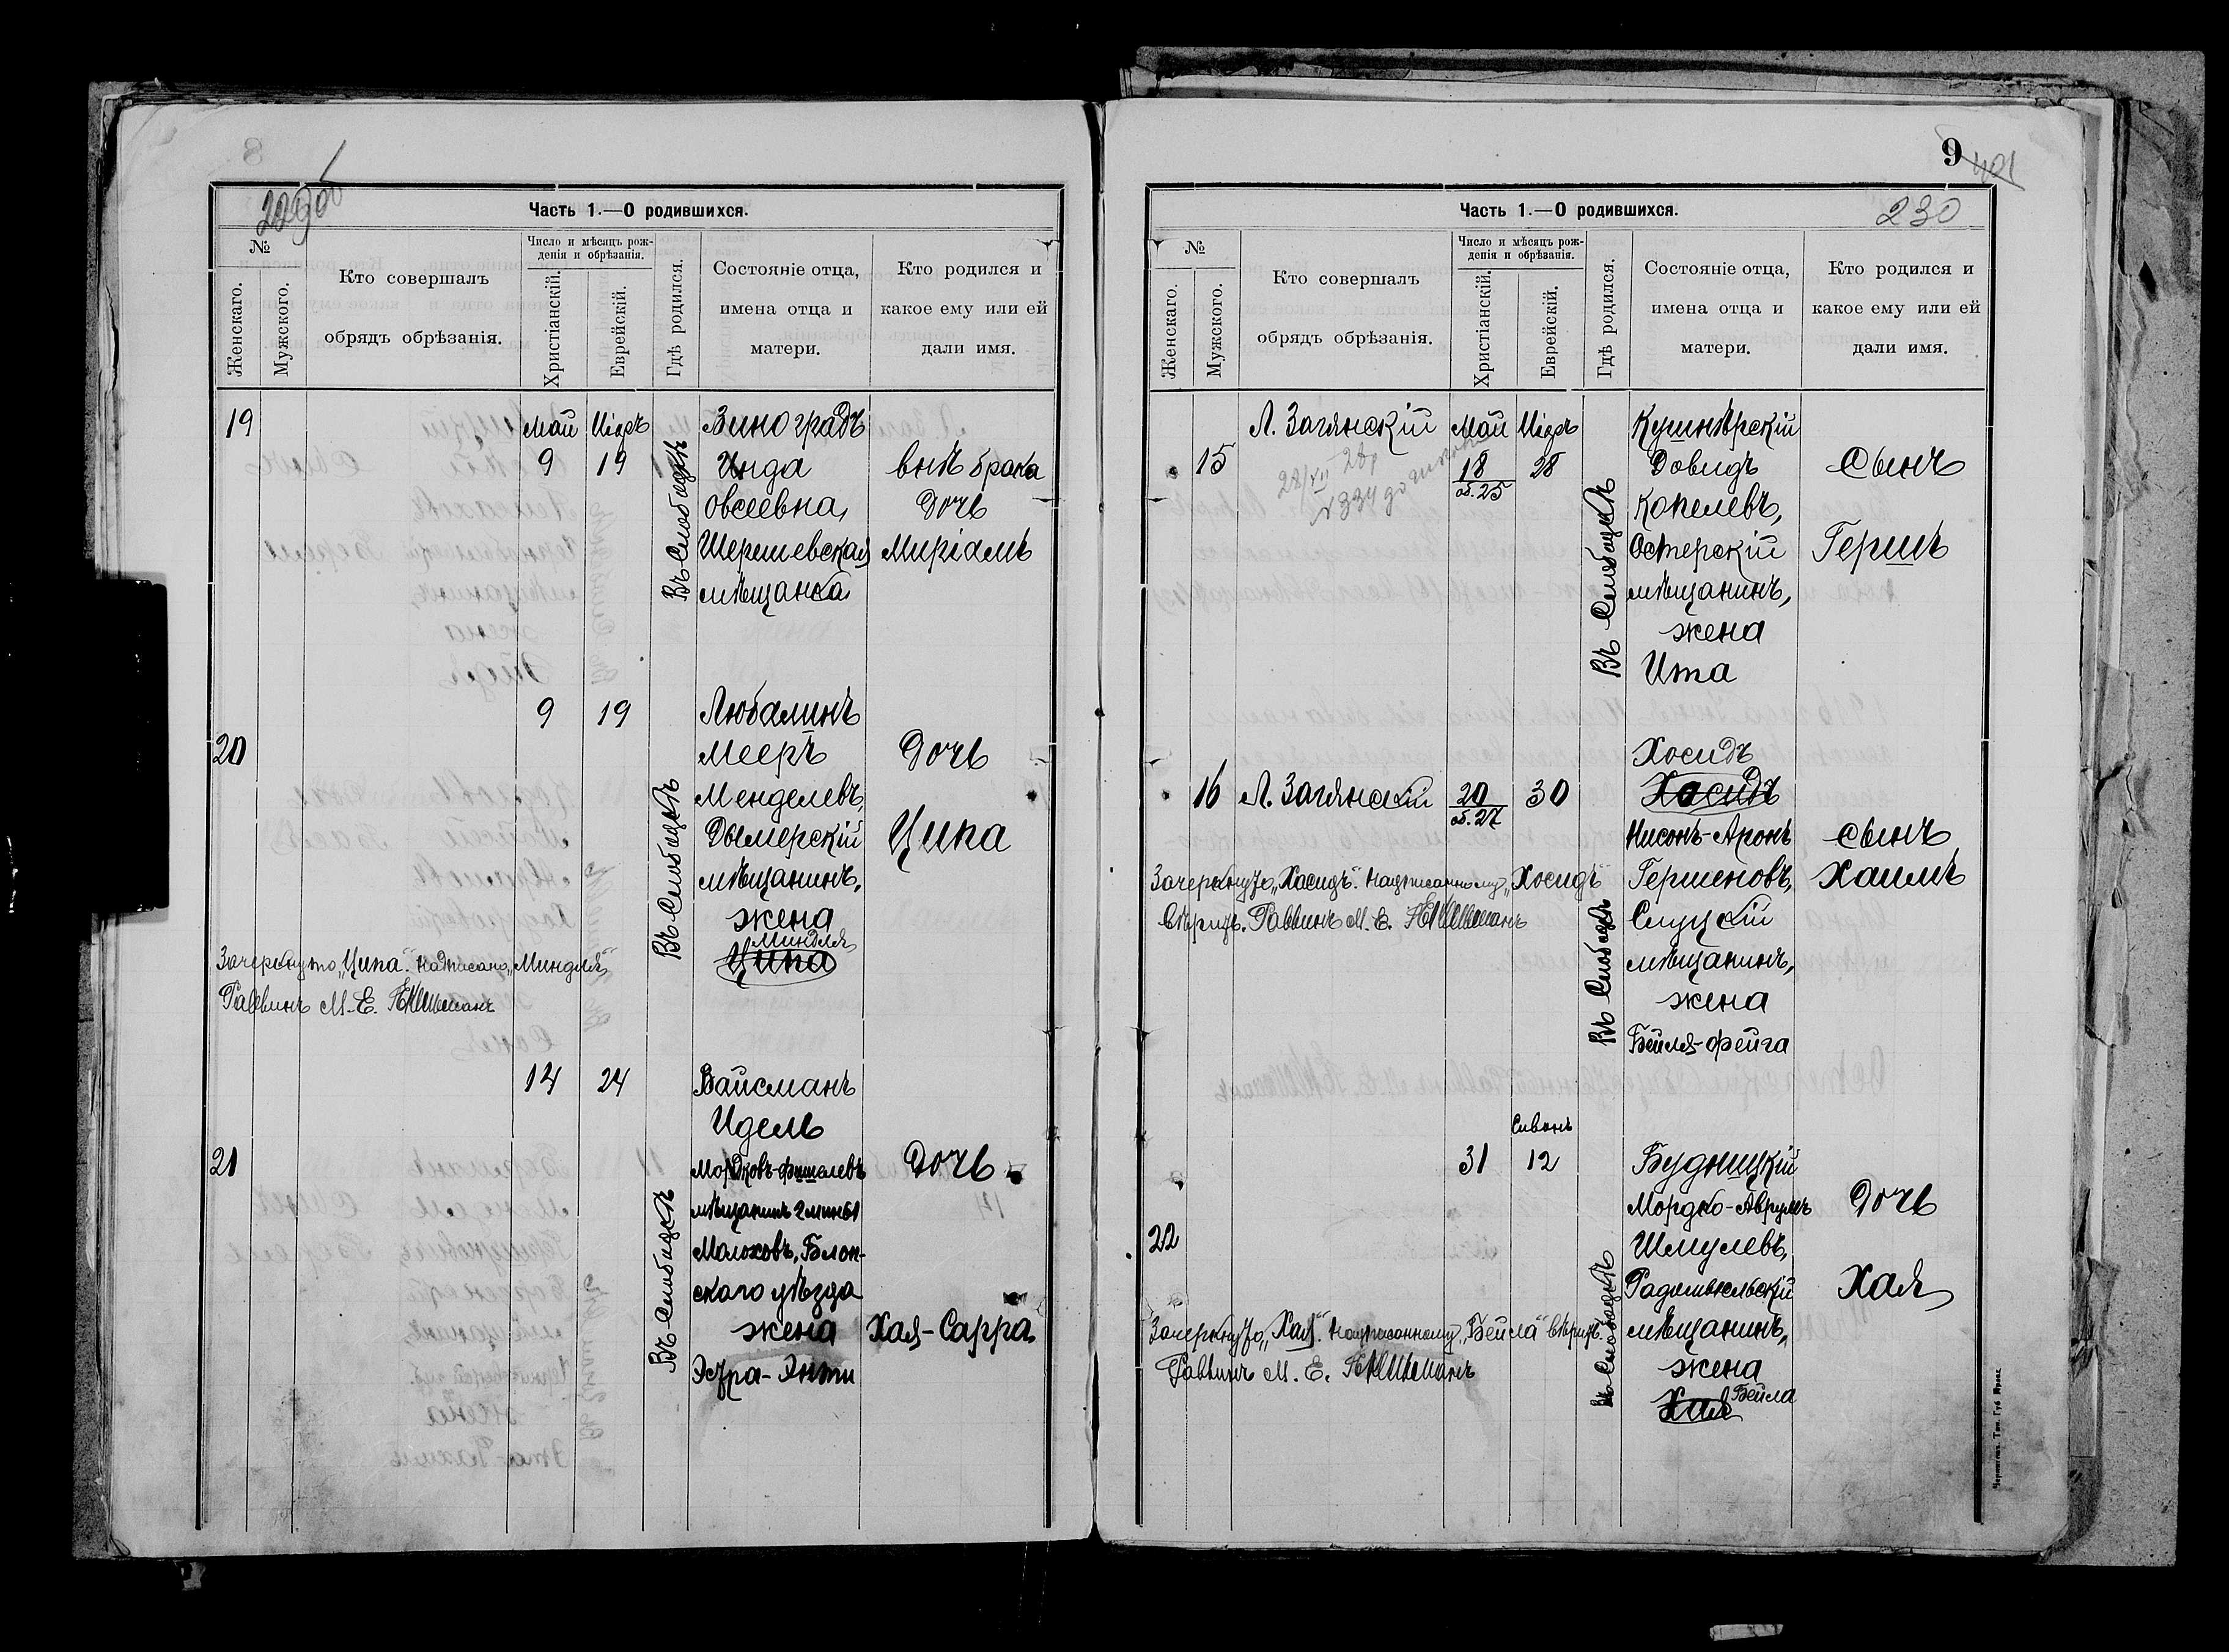 229об
Часть 1.—О родившихся.
№
Женскаго.
Мужского.
Кто совершалъ
обрядъ обрѣзанія.
Число и мѣсяцъ рож-
денія и обрѣзанія.
Христіанскій.
Еврейскій.
Гдѣ родился.
Состояніе отца,
имена отца и
матери.
Кто родился и
какое ему или ей
дали имя.
19
Май Іиръ
9 19
Въ Слободкѣ
Виноградъ
Инда
Овсеевна,
Шерешевская
мѣщанка
внѣ брака
Дочь
Миріамъ
20
9 19
Въ Слободкѣ
Любалинъ
Мееръ
Менделевъ,
Дымерскій
мѣщанинъ,
жена
Миндля
Ципа
Дочь
Ципа
Зачеркнуто „Ципа“. Надписано „Миндля“
Раввинъ М.-Е.
21
14 24
Въ Слободкѣ
Вайсманъ
Идель
Мордковъ-Фишелевъ
мѣщанинъ
Блон-
скаго уѣзда
жена
Эстра-Энти
Дочь
Хая-Сарра
9
401
230
Часть 1.—О родившихся.
№
Женскаго.
Мужского.
Кто совершалъ
обрядъ обрѣзанія.
Число и мѣсяцъ рож-
денія и обрѣзанія.
Христіанскій.
Еврейскій.
Гдѣ родился.
Состояніе отца,
имена отца и
матери.
Кто родился и
какое ему или ей
дали имя.
15
Л. Загянскій
Май Іиръ
18 28
об. 25
Въ Слободкѣ
Кушнѣрскій
Довидъ
Копелевъ,
Остерскій
мѣщанинъ,
жена
Ита
Сынъ
Гершъ
16
Л. Загянскій
20 30
об. 27
Въ Слободкѣ
Хосидъ
Хасидъ
Нисонъ-Аронъ
Гершеновъ,
Слуцкій
мѣщанинъ,
жена
Бейля-Фейга
сынъ
Хаимъ
Зачеркнуто „Хасидъ“. Надписанному „Хосидъ“
вѣрить. Раввинъ М. Е.
22
Сивонъ
31 12
Въ Слободкѣ
Будницкій
Мордко-Аврумъ
Шмулевъ,
Радомысльскій
мѣщанинъ,
жена
Бейла
Хая
Дочь
Хая
Зачеркнуто „Хая“. Надписанному „Бейла“ вѣрить.
Раввинъ М. Е.